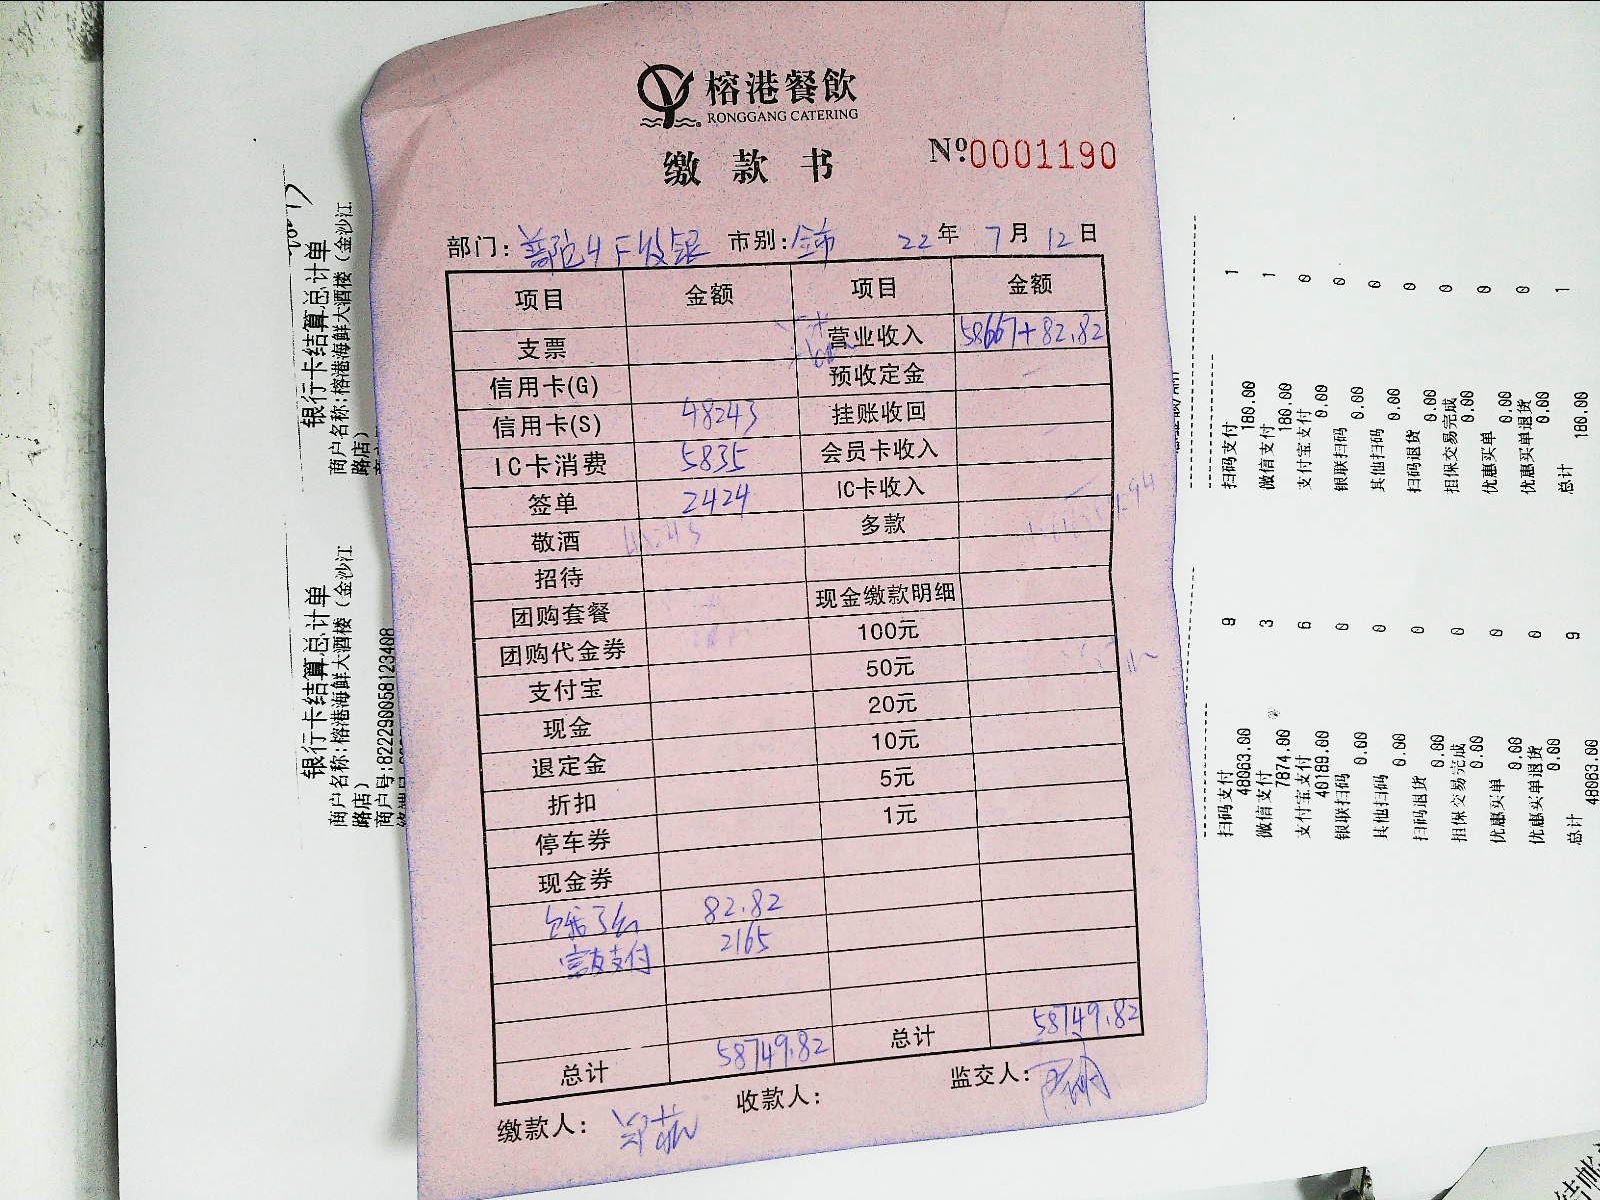 榕港餐飲
RONGGANG CATERING
缴款书
Nº0001190
部门: 普陀4F收银 市别: 全市 22年 7月 12日
项目 金额 项目 金额
支票 营业收入 58667+82.82
信用卡(G) 预收定金
信用卡(S) 48243 挂账收回
IC卡消费 5835 会员卡收入
签单 2424 IC卡收入
敬酒 多款
招待
团购套餐 现金缴款明细
团购代金券 100元
支付宝 50元
现金 20元
退定金 10元
折扣 5元
停车券 1元
现金券
82.82
支付 2165
总计 58749.82 总计 58749.82
缴款人: 收款人: 监交人:
银行卡结算总计单
商户名称:榕港海鲜大酒楼(金沙江
路店)
扫码支付 1
180.00
微信支付 1
180.00
支付宝支付 0
0.00
银联扫码 0
0.00
其他扫码 0
0.00
扫码退货 0
0.00
担保交易完成 0
0.00
优惠买单 0
0.00
优惠买单退货 0
0.00
总计 1
180.00
银行卡结算总计单
商户名称:榕港海鲜大酒楼(金沙江
路店)
商户号:822290058123408
扫码支付 9
48063.00
微信支付 3
7874.00
支付宝支付 6
40189.00
银联扫码 0
0.00
其他扫码 0
0.00
扫码退货 0
0.00
担保交易完成 0
0.00
优惠买单 0
0.00
优惠买单退货 0
0.00
总计 9
48063.00